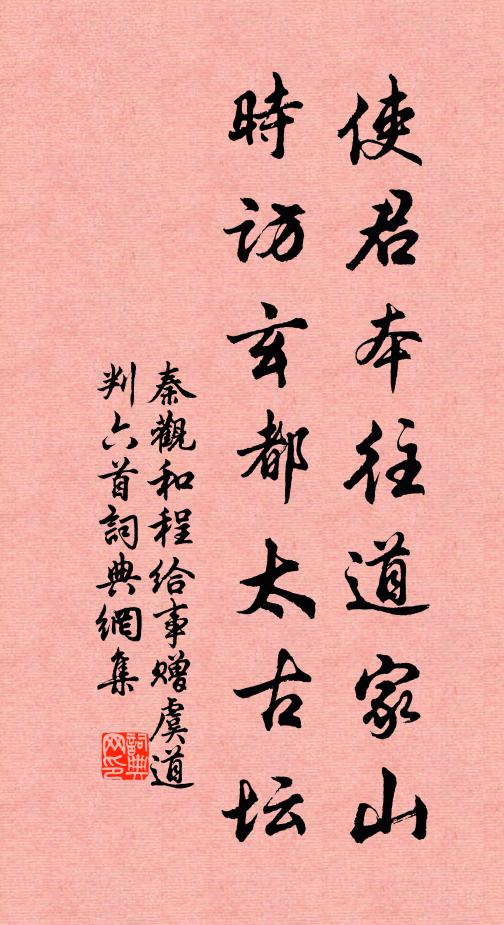 使君本往道家山
時訪玄都太古坛
秦觀和程給事贈虞道
判六首詞典網集
詞典網印